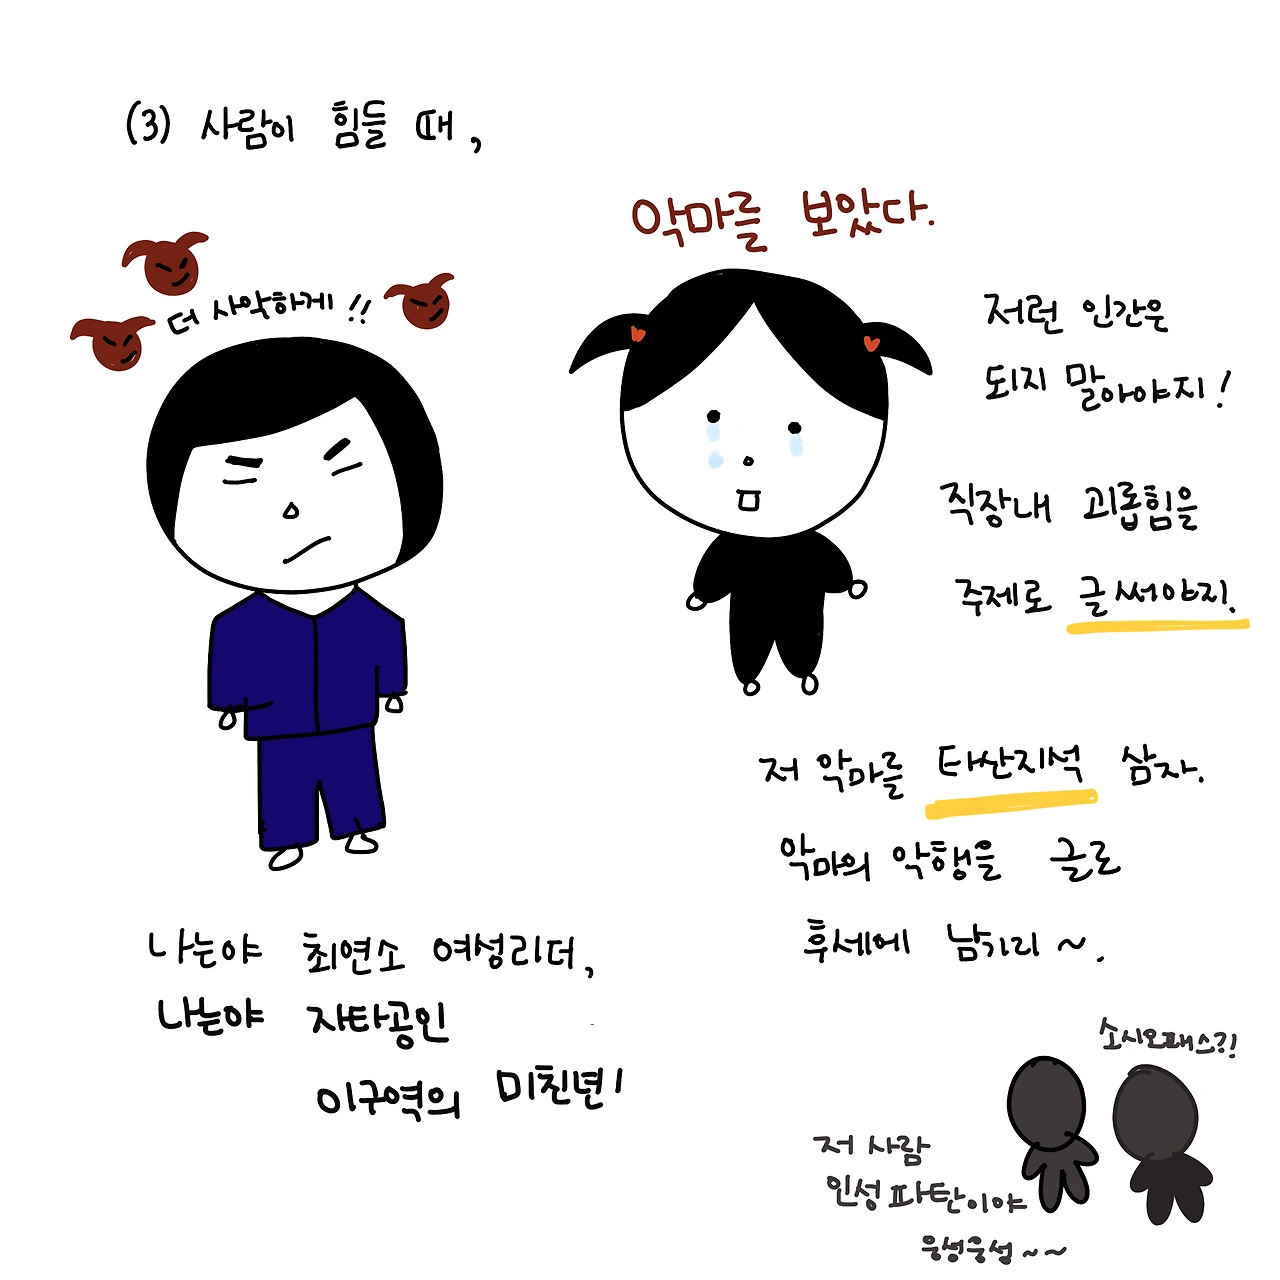 (3) 사람이 힘들 때,
악마를 보았다.
더 사악하게!!
저런 인간은
되지 말아야지!
직장내 괴롭힘을
주제로 글써야지.
저 악마를 타산지석 삼자.
악마의 악행을 글로
후세에 남기리~.
나는야 최연소 여성리더,
나는야 자타공인
이구역의 미친년!
소시오패스?!
저 사람
인성파탄이야
웅성웅성~~